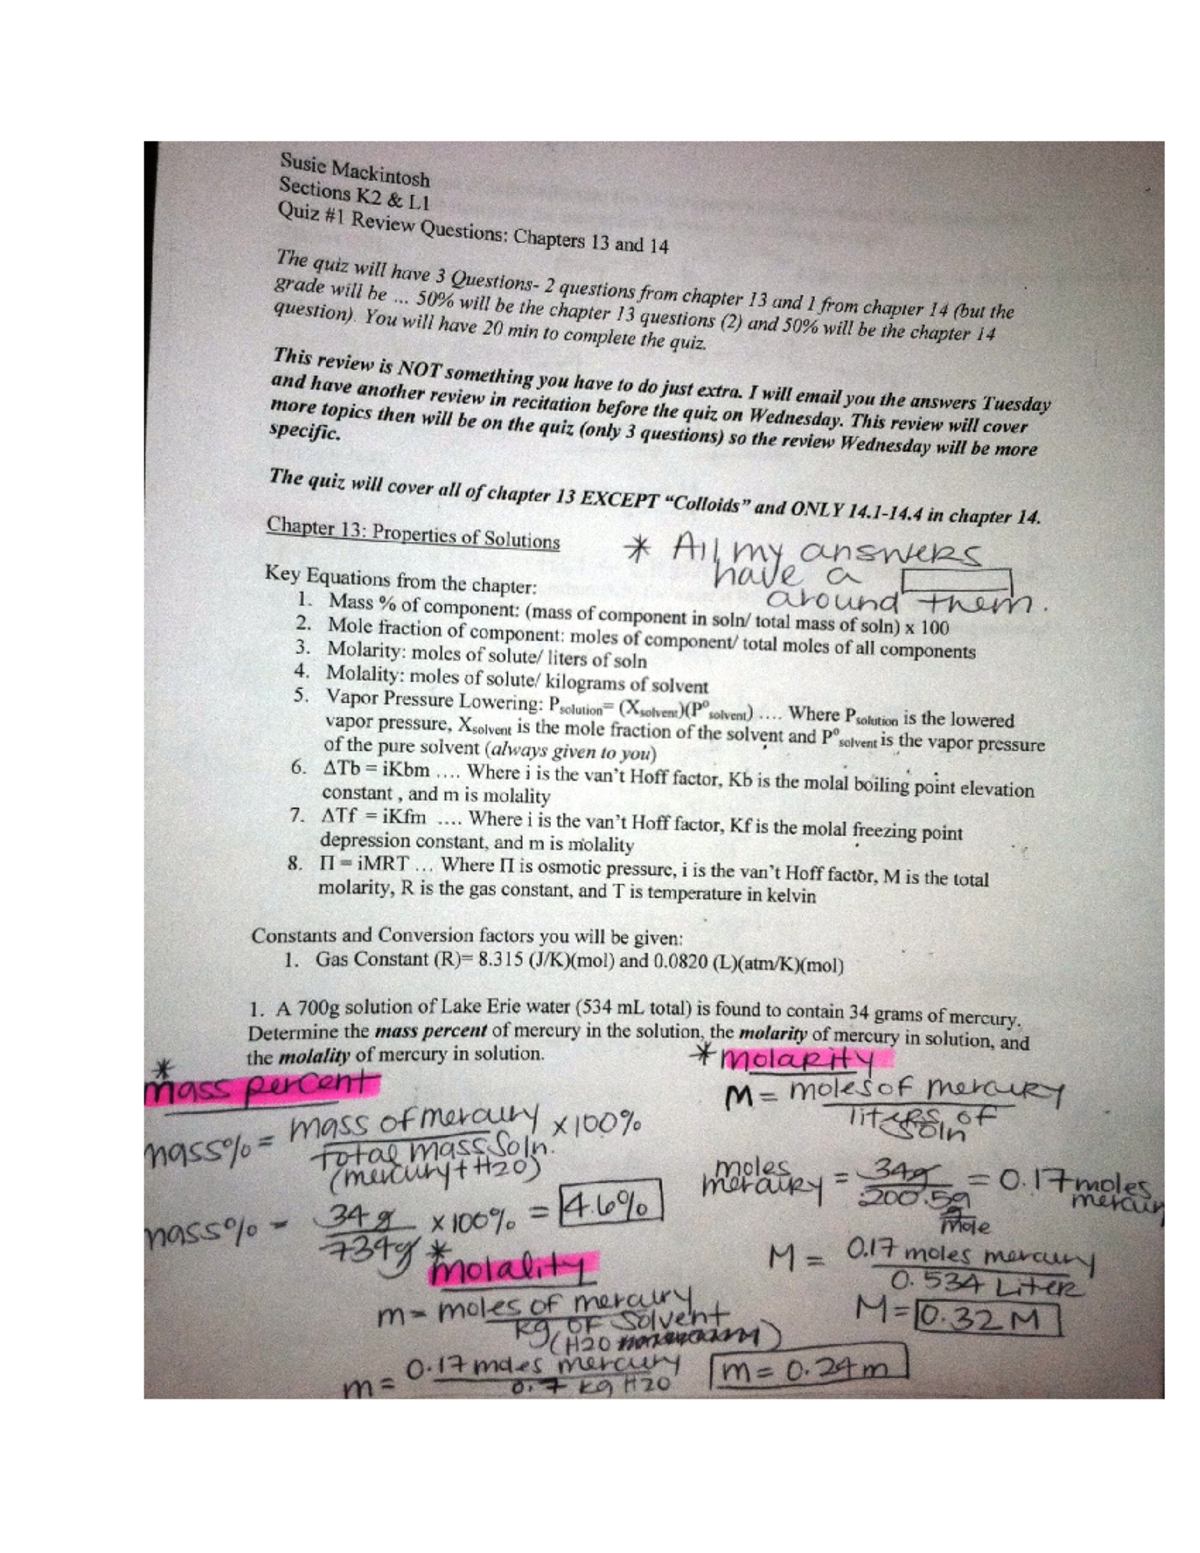 Susie Mackintosh
Sections K2 & L1
Quiz #1 Review Questions: Chapters 13 and 14
The quiz will have 3 Questions- 2 questions from chapter 13 and 1 from chapter 14 (but the
grade will be ... 50% will be the chapter 13 questions (2) and 50% will be the chapter 14
question). You will have 20 min to complete the quiz.
This review is NOT something you have to do just extra. I will email you the answers Tuesday
and have another review in recitation before the quiz on Wednesday. This review will cover
more topics then will be on the quiz (only 3 questions) so the review Wednesday will be more
specific.
The quiz will cover all of chapter 13 EXCEPT “Colloids” and ONLY 14.1-14.4 in chapter 14.
Chapter 13: Properties of Solutions
* All my answers
have a
around them.
Key Equations from the chapter:
1. Mass % of component: (mass of component in soln/ total mass of soln) x 100
2. Mole fraction of component: moles of component/ total moles of all components
3. Molarity: moles of solute/ liters of soln
4. Molality: moles of solute/ kilograms of solvent
5. Vapor Pressure Lowering: Psolution= (Xsolvent)(P°solvent) .... Where Psolution is the lowered
vapor pressure, Xsolvent is the mole fraction of the solvent and P°solvent is the vapor pressure
of the pure solvent (always given to you)
6. ΔTb = iKbm .... Where i is the van’t Hoff factor, Kb is the molal boiling point elevation
constant , and m is molality
7. ΔTf = iKfm .... Where i is the van’t Hoff factor, Kf is the molal freezing point
depression constant, and m is molality
8. Π = iMRT ... Where Π is osmotic pressure, i is the van’t Hoff factor, M is the total
molarity, R is the gas constant, and T is temperature in kelvin
Constants and Conversion factors you will be given:
1. Gas Constant (R)= 8.315 (J/K)(mol) and 0.0820 (L)(atm/K)(mol)
1. A 700g solution of Lake Erie water (534 mL total) is found to contain 34 grams of mercury.
Determine the mass percent of mercury in the solution, the molarity of mercury in solution, and
the molality of mercury in solution.
*
mass percent
mass% = mass of mercury x 100%
total mass soln.
(mercury + H2O)
mass% = 34 g x 100% = 4.6%
734g
* molarity
M = moles of mercury
liters of
soln
moles
mercury = 34g = 0.17 moles
mercury
200.5g
mole
M = 0.17 moles mercury
0.534 Liter
M = 0.32 M
* molality
m = moles of mercury
kg of solvent
(H2O )
m = 0.17 moles mercury
0.7 kg H2O
m = 0.24 m